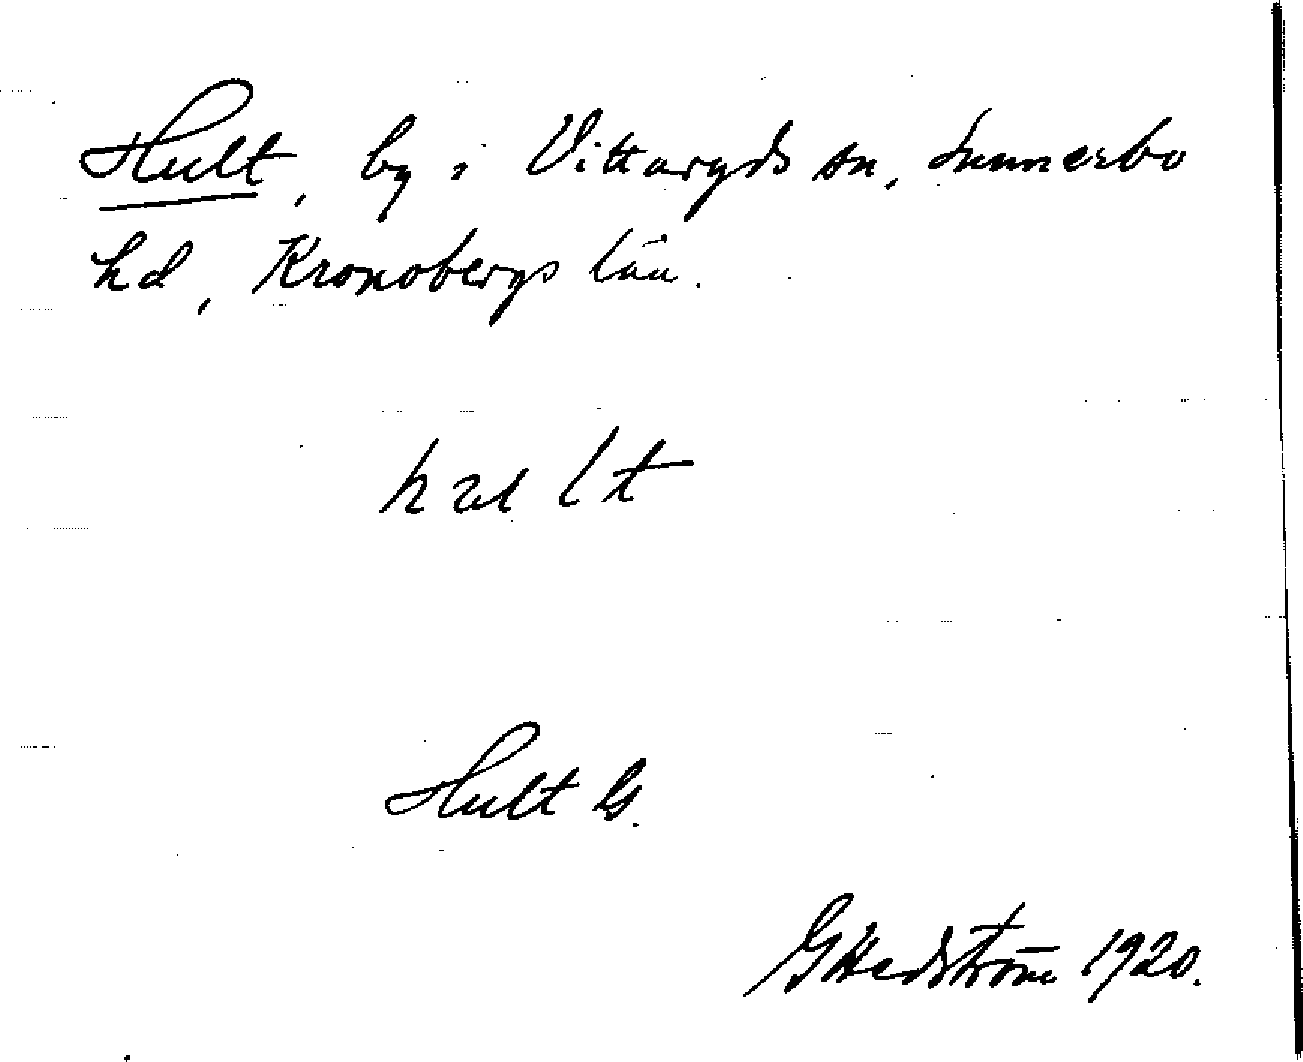 Hult, by i Vittaryds sn, Sunnerbo
hd, Kronobergs län.
Hult G.
GHedström 1920.